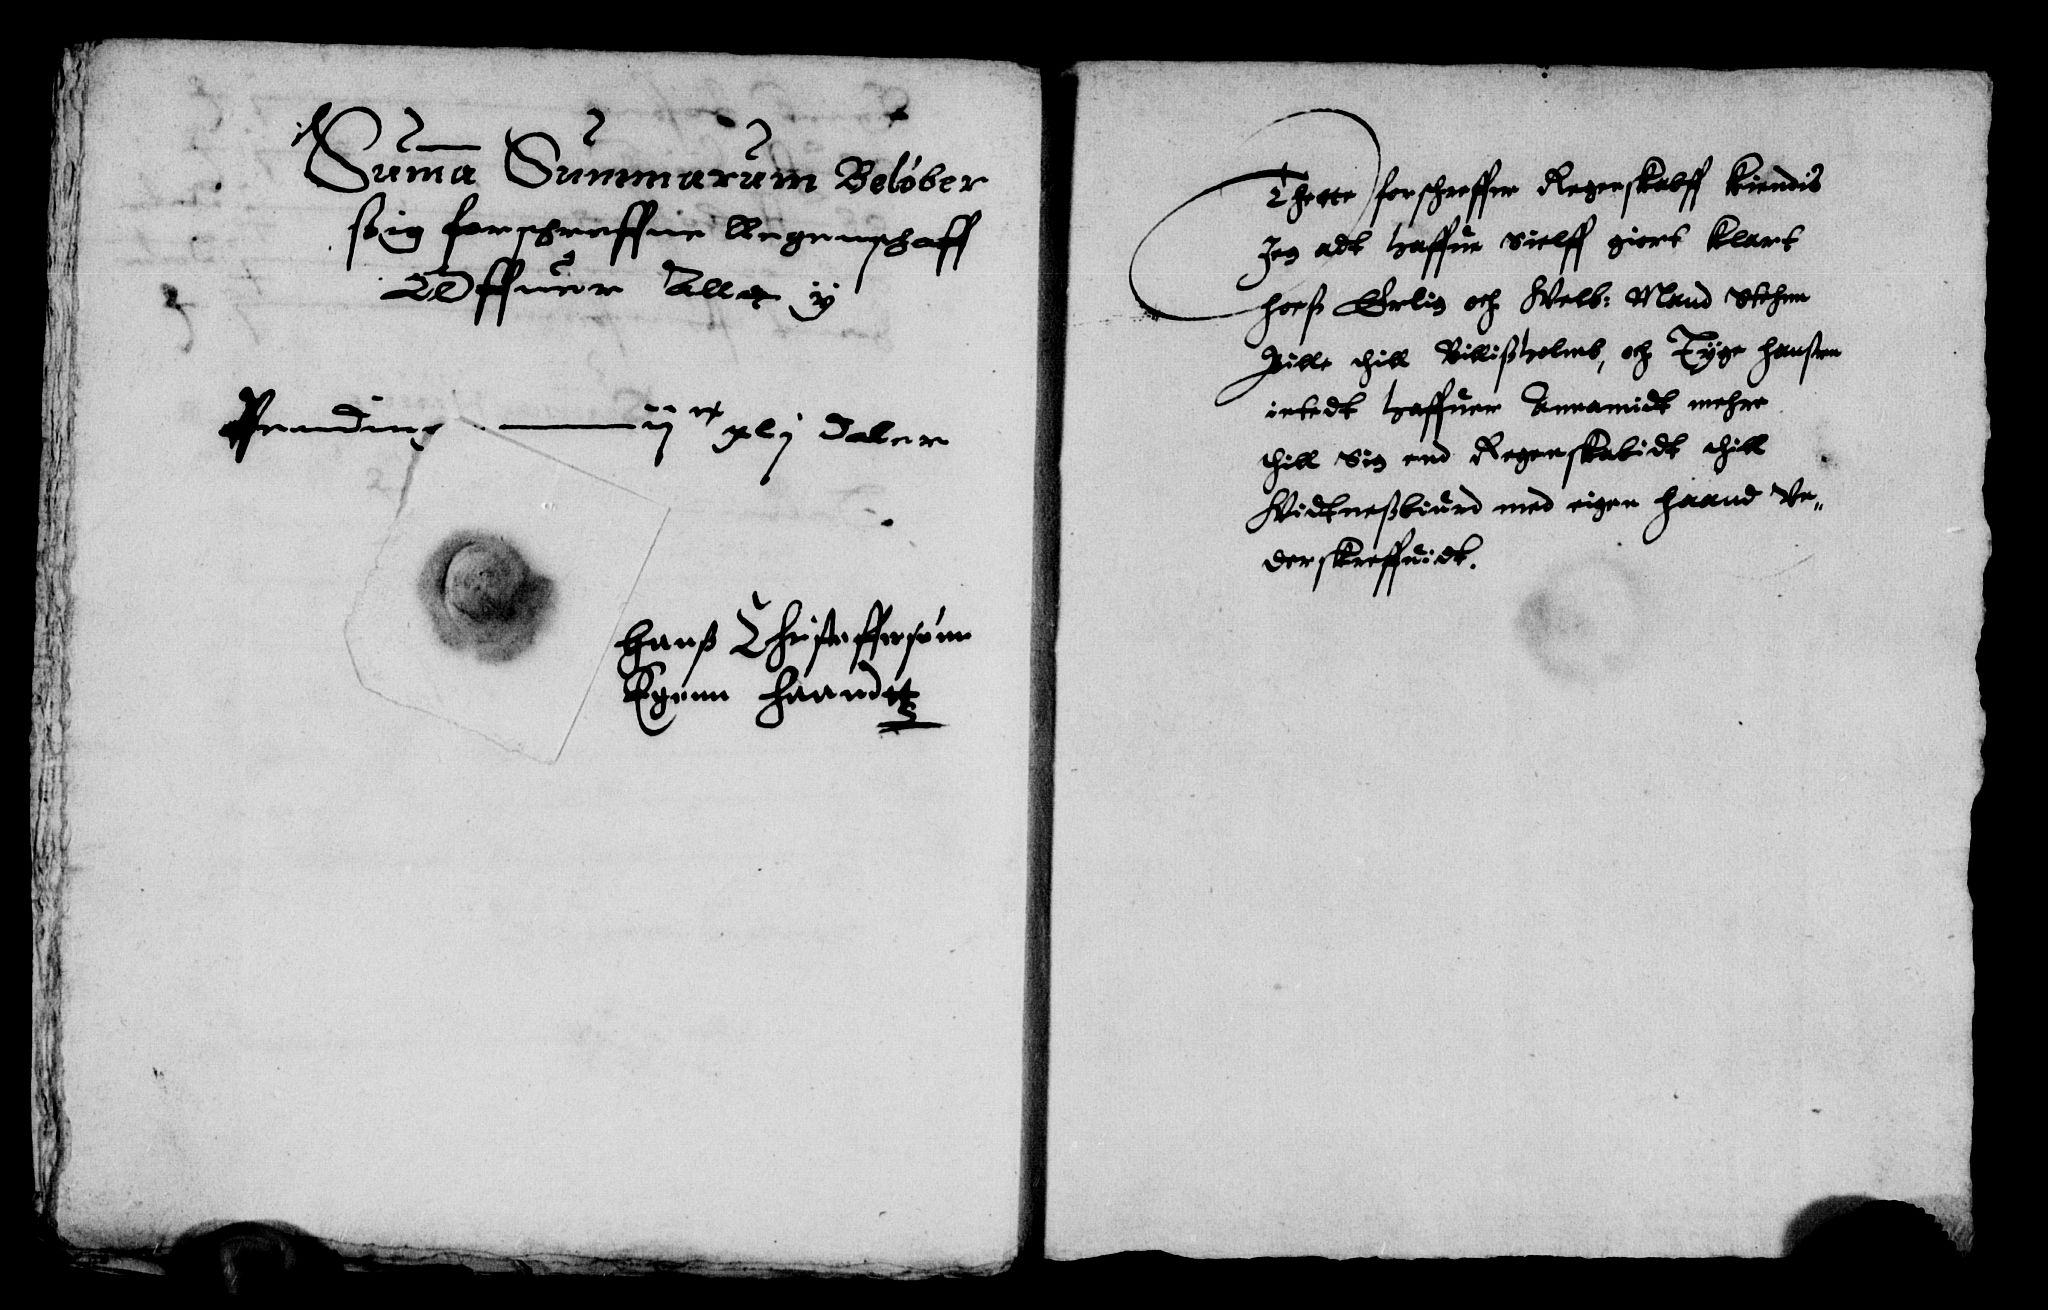 Suma Summarum Beløber
ßig forschreffne Regenschaff
Offuer Alle y
Penndinge ijᶜ xlj Daler
Hanß Christoffersønn
Egenn haandt
Thette forschreffne Regenskabff kiendis
Jeg adt haffue Sielff giort klart
hoeß Erlig och Welb: Mand Stehen
Bille thill Billißholmb, och Tyge Hanßen
intedt haffuer Annamidt mehre
thill Sig end Regenskabidt thill
Widtneßbiurd med eigen haand Vn„
derskreffuidt.